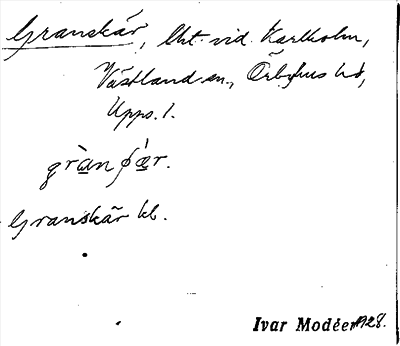 Granskär, vid Karlholm,
Västland sn., Örbyhus hd,
Upps. l.
Granskär kl.
Ivar Modéer 1928.